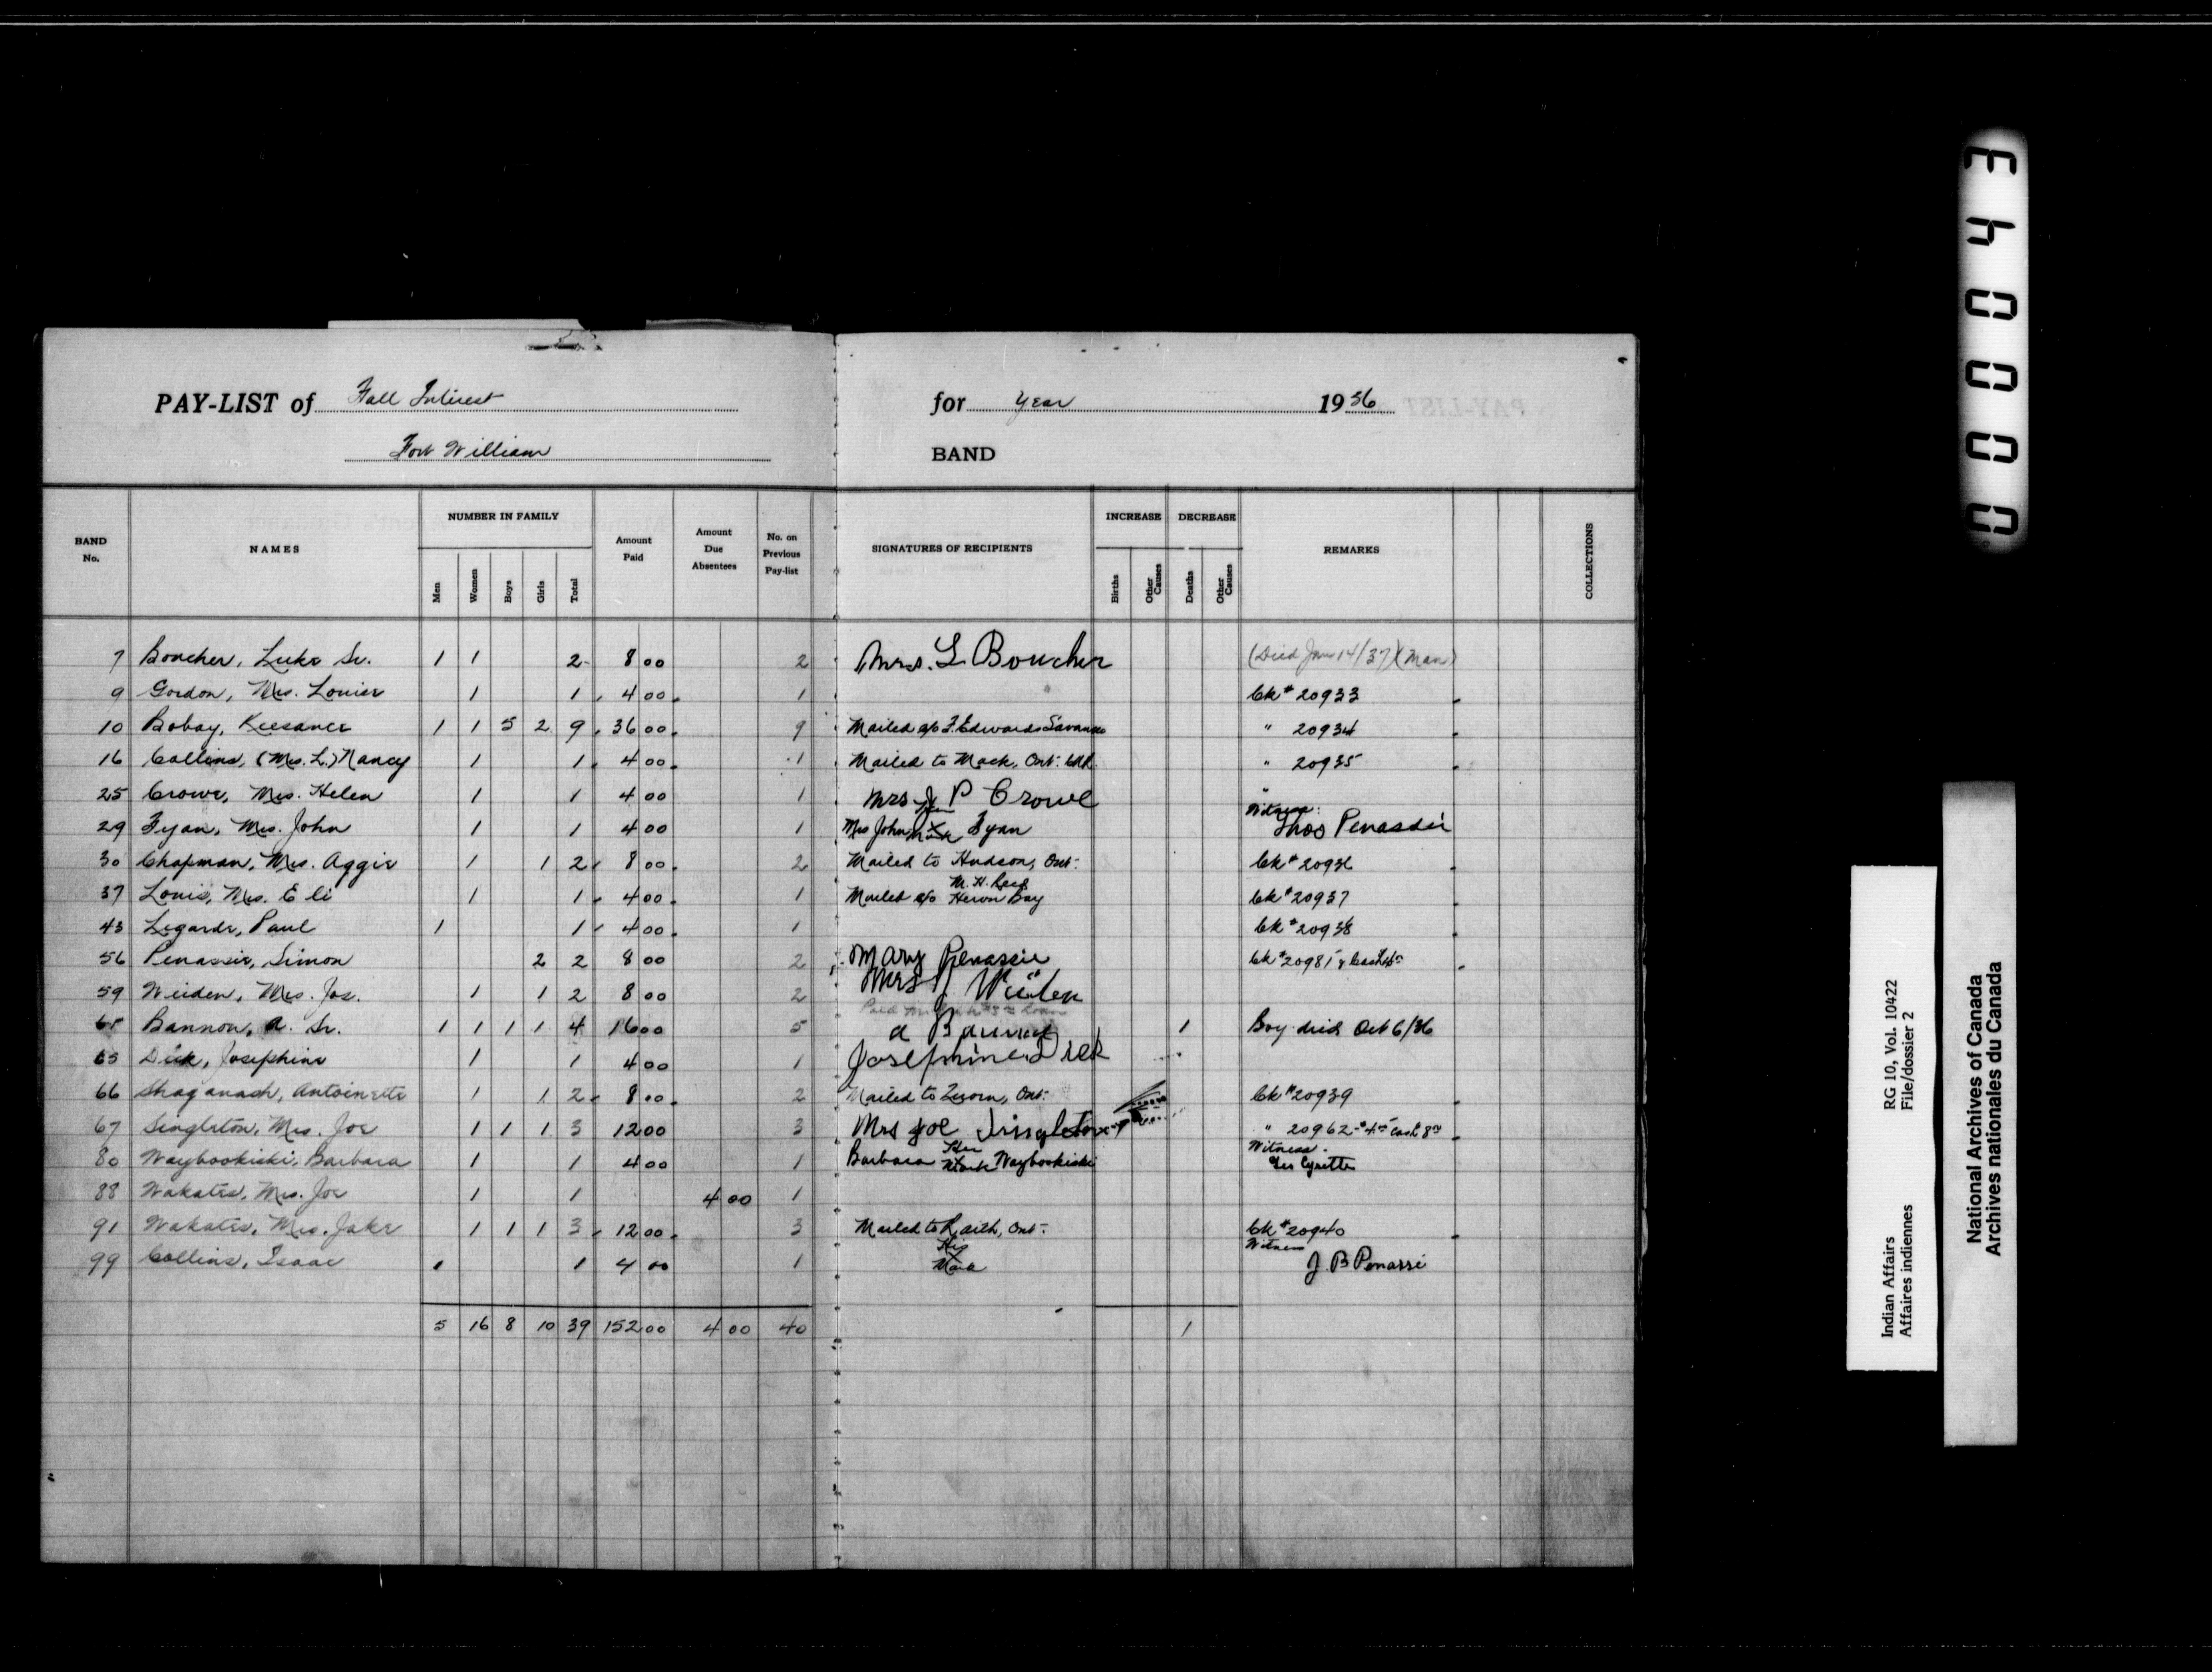 PAY-LIST of Fall Interest for Year 1936
Fort William BAND
BAND No. NAMES NUMBER IN FAMILY Men Women Boys Girls Total Amount Paid Amount Due Absentees No. on Previous Pay-list SIGNATURES OF RECIPIENTS INCREASE Births Other Causes DECREASE Deaths Other Causes REMARKS COLLECTIONS
7 Boucher, Luke Sr. 1 1 2 8 00 2 Mrs. L Boucher (Died Jan 14/37) (Man)
9 Gordon, Mrs. Louise 1 1 4 00 1 Ck # 20933
10 Bobay, Keesance 1 1 5 2 9 36 00 9 Mailed c/o F. Edwards Savanne " 20934
16 Collins, (Mrs. L.) Nancy 1 1 4 00 1 Mailed to Mack, Ont. " 20935
25 Crowe, Mrs. Helen 1 1 4 00 1 Mrs J P Crowe "
29 Fyan, Mrs. John 1 1 4 00 1 Mrs John her X mark Fyan Witness: Thos Penassie
30 Chapman, Mrs. Aggie 1 1 2 8 00 2 Mailed to Hudson, Ont. Ck # 20936
37 Louis, Mrs. Eli 1 1 4 00 1 Mailed c/o M. H. Heron Bay Ck # 20937
43 Legarde, Paul 1 1 4 00 1 Ck # 20938
56 Penassie, Simon 2 2 8 00 2 Mary Penassie Ck # 20981 & Cash
59 Weiden, Mrs. Jos. 1 1 2 8 00 2 Mrs J. Weiden
Bannon, A. Sr. 1 1 1 1 4 16 00 5 A Bannon 1 Boy died Oct 6/36
65 Dick, Josephine 1 1 4 00 1 Josephine Dick
66 Shaganash, Antoinette 1 1 2 8 00 2 Mailed to Ont. Ck # 20939
67 Singleton, Mrs. Joe 1 1 1 3 12 00 3 Mrs Joe Singleton " 20962 - $4 00 Cash 8 00
80 Waybookiski, Barbara 1 1 4 00 1 Barbara Her Mark Waybookiski Witness. Cyrette
88 Wakatis, Mrs. Joe 1 1 4 00 1
91 Wakatis, Mrs. Jake 1 1 1 3 12 00 3 Mailed to Raith, Ont. Ck # 20940
99 Collins, Isaac 1 1 4 00 1 His X Mark Witness J. B Penassi
5 16 8 10 39 152 00 4 00 40 1
00043
Indian Affairs RG 10, Vol. 10422
Affaires indiennes File/dossier 2
National Archives of Canada
Archives nationales du Canada